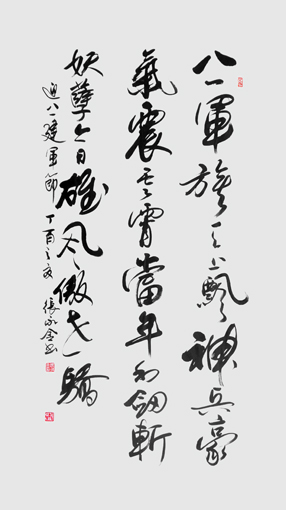 八一軍旗天上飄神兵豪
氣震雲霄當年利劍斬
妖孽今日雄风傲世驕
迎八一建軍節 丁酉之夏 張永金書